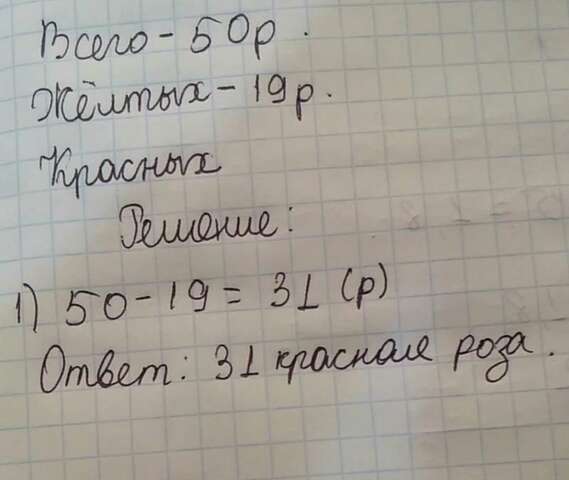 Всего - 50р.
Жёлтых - 19р.
Красных
Решение:
1) 50 - 19 = 31 (р)
Ответ: 31 красная роза.